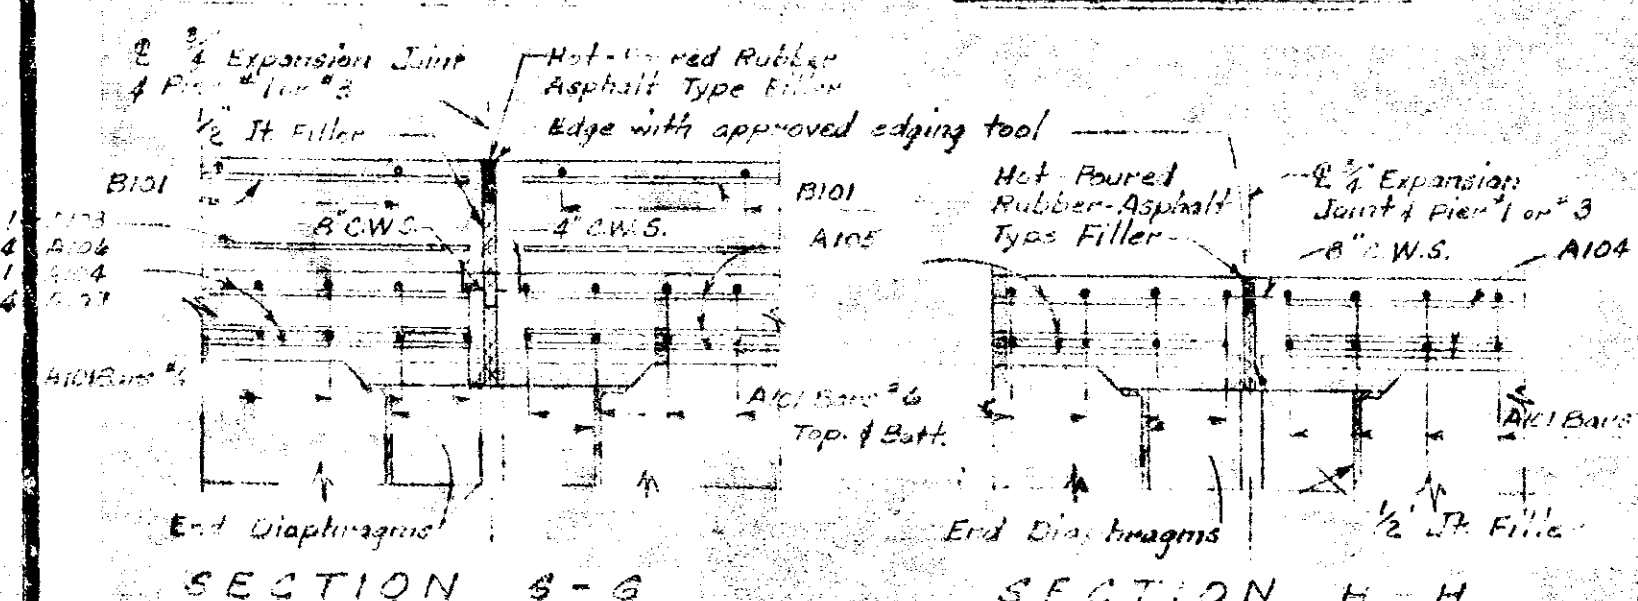 ℄ 3/4" Expansion Joint
& Pier #1 or #3
1/2" Jt Filler
Hot-Poured Rubber
Asphalt Type Filler
Edge with approved edging tool
B101
8" C.W.S.
4" C.W.S.
B101
A105
1
4 A106
1
4
A101 Bars #6
A101 Bars #6
Top. & Bott.
End Diaphragms
SECTION G-G
Hot Poured
Rubber-Asphalt
Type Filler
℄ 3/4" Expansion
Joint & Pier #1 or #3
8" C.W.S.
A104
A101 Bars
End Diaphragms
1/2" Jt. Filler
SECTION H-H